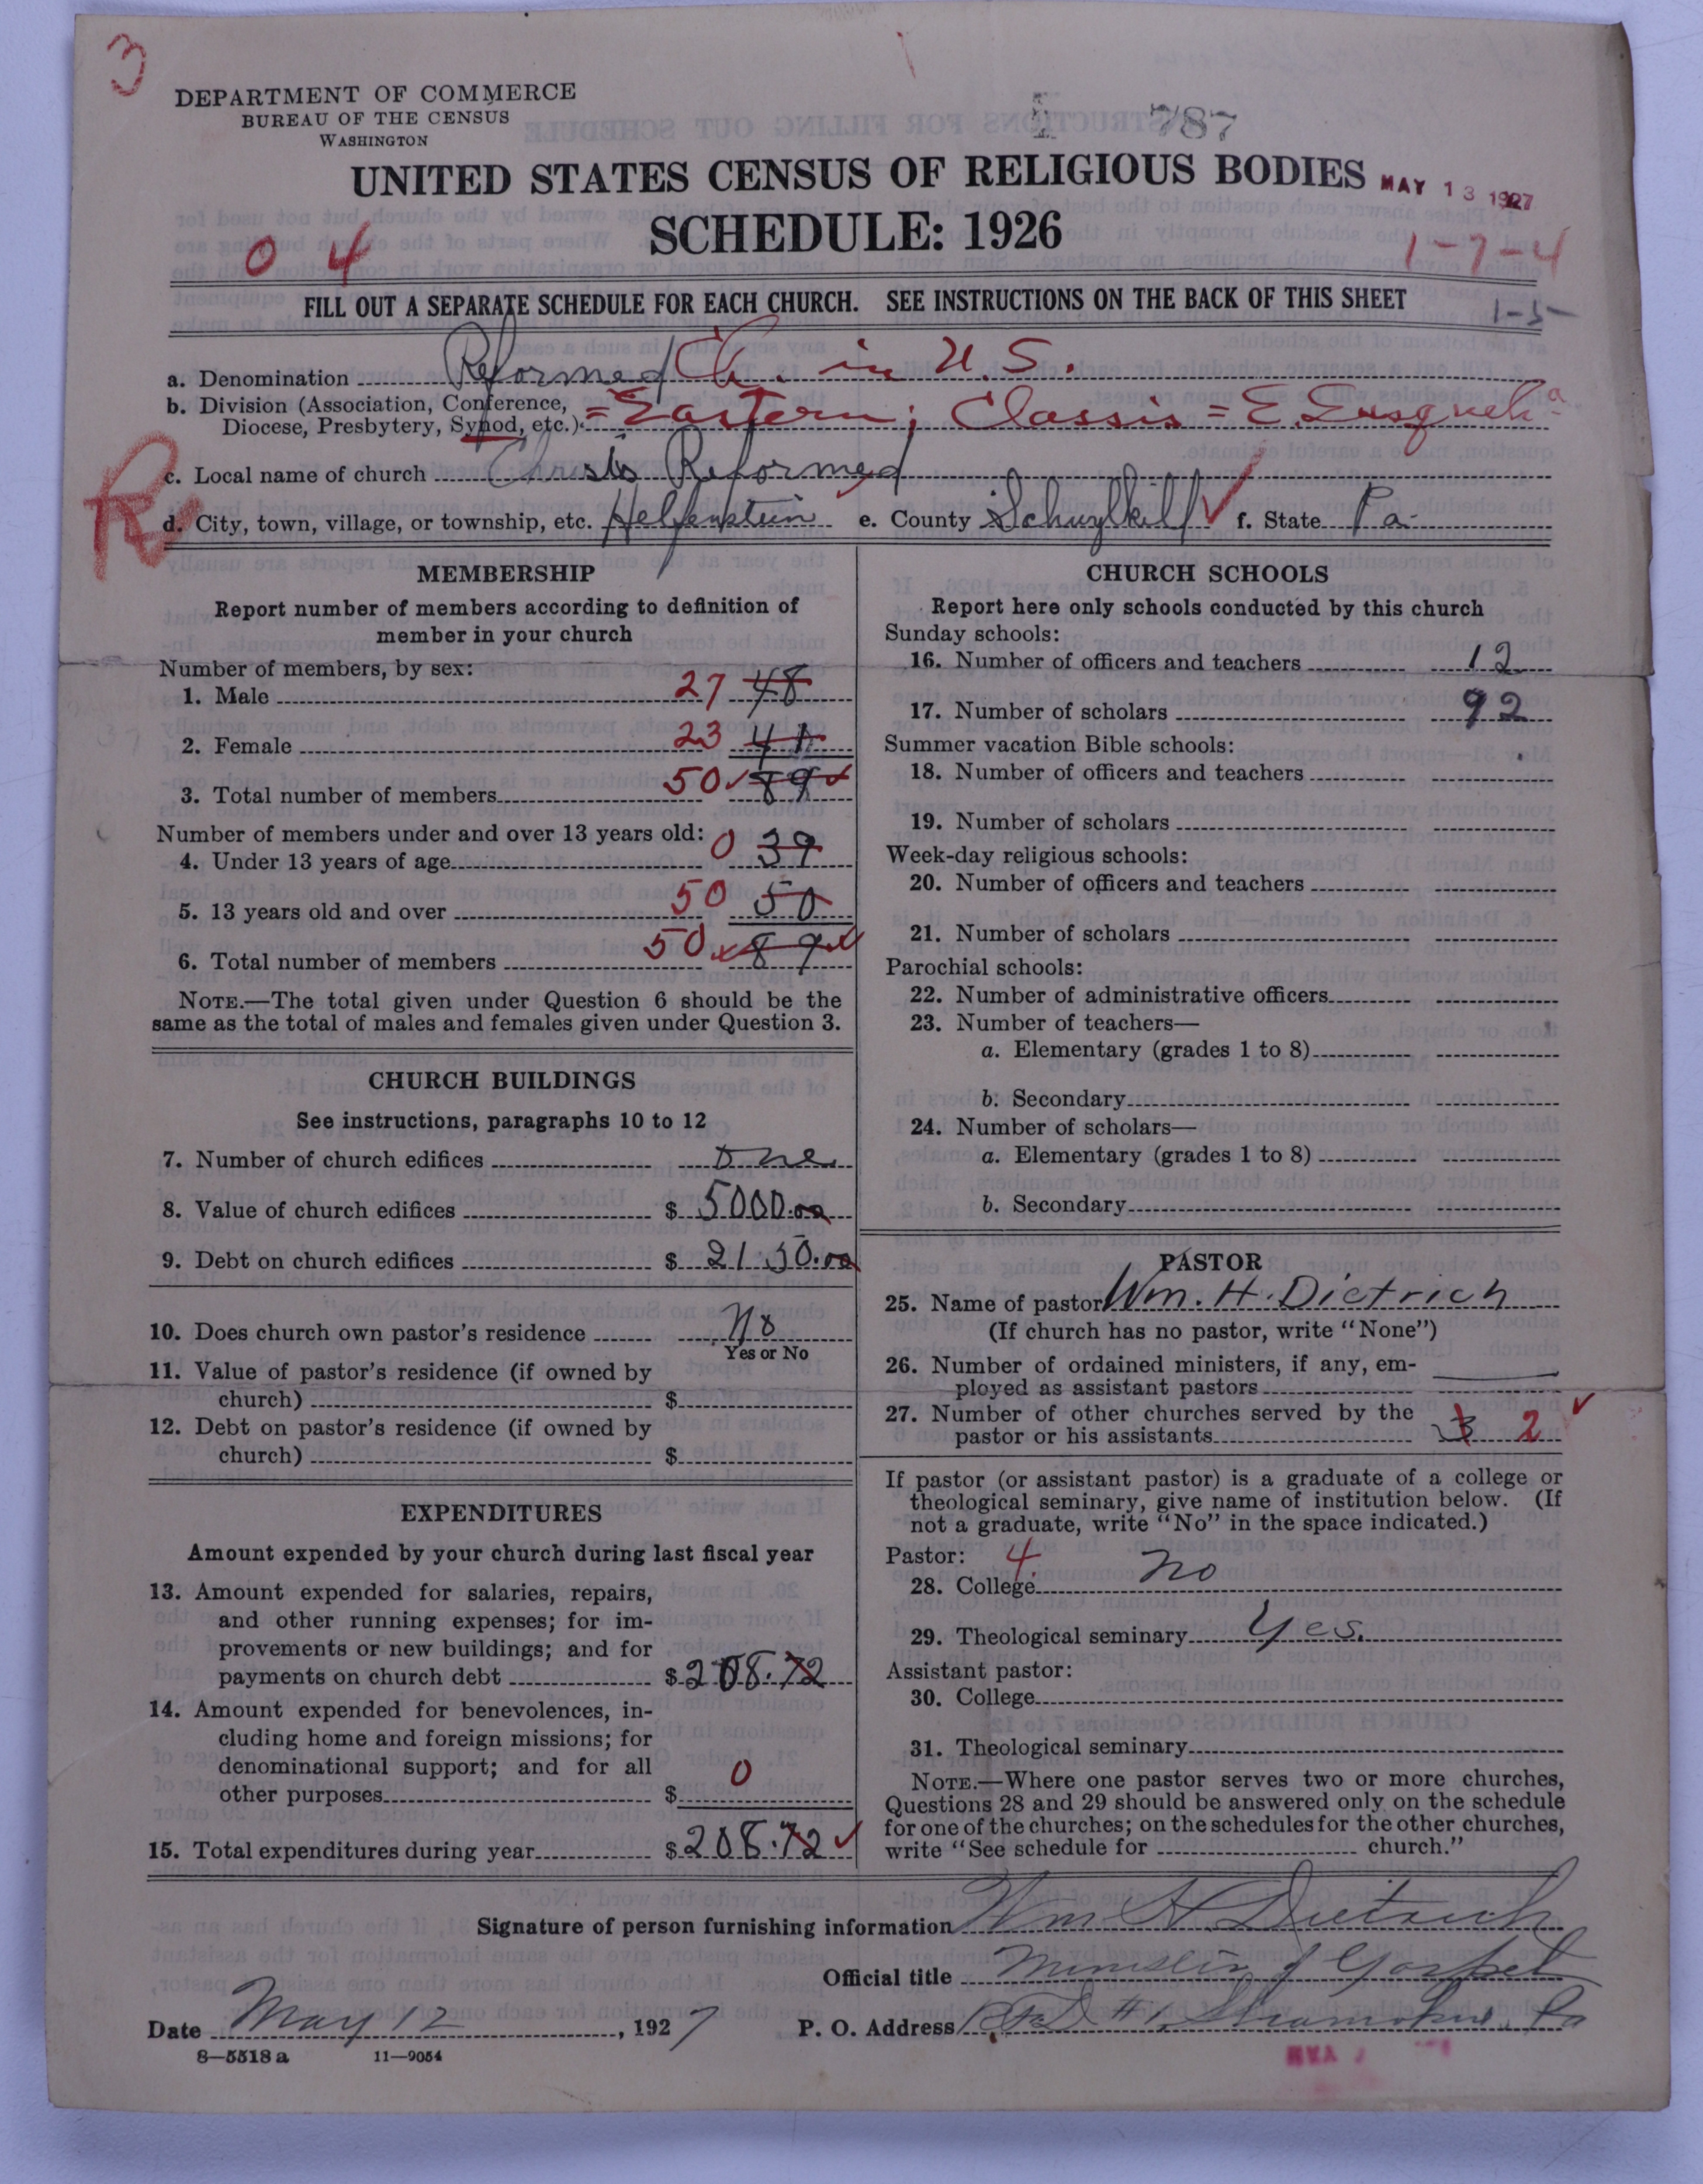 3
DEPARTMENT OF COMMERCE
BUREAU OF THE CENSUS
WASHINGTON
787
UNITED STATES CENSUS OF RELIGIOUS BODIES
MAY 13 1927
SCHEDULE: 1926
0 4
1-7-4
FILL OUT A SEPARATE SCHEDULE FOR EACH CHURCH. SEE INSTRUCTIONS ON THE BACK OF THIS SHEET
1-5
a. Denomination Reformed Ch. in U.S.
b. Division (Association, Conference, Diocese, Presbytery, Synod, etc.) = Eastern; Classis = E. Susqueh^a
R
c. Local name of church Christs Reformed
d. City, town, village, or township, etc. Helfenstein e. County Schuylkill f. State Pa.
MEMBERSHIP
Report number of members according to definition of
member in your church
Number of members, by sex:
1. Male 27 48
2. Female 23 41
3. Total number of members 50 89
Number of members under and over 13 years old:
4. Under 13 years of age 0 39
5. 13 years old and over 50 50
6. Total number of members 50 89
NOTE.—The total given under Question 6 should be the
same as the total of males and females given under Question 3.
CHURCH BUILDINGS
See instructions, paragraphs 10 to 12
7. Number of church edifices One
8. Value of church edifices $ 5000.00
9. Debt on church edifices $ 2150.00
10. Does church own pastor's residence No
Yes or No
11. Value of pastor's residence (if owned by
church) $
12. Debt on pastor's residence (if owned by
church) $
EXPENDITURES
Amount expended by your church during last fiscal year
13. Amount expended for salaries, repairs,
and other running expenses; for im-
provements or new buildings; and for
payments on church debt $ 208.72
14. Amount expended for benevolences, in-
cluding home and foreign missions; for
denominational support; and for all
other purposes $ 0
15. Total expenditures during year $ 208.72
CHURCH SCHOOLS
Report here only schools conducted by this church
Sunday schools:
16. Number of officers and teachers 12
17. Number of scholars 92
Summer vacation Bible schools:
18. Number of officers and teachers
19. Number of scholars
Week-day religious schools:
20. Number of officers and teachers
21. Number of scholars
Parochial schools:
22. Number of administrative officers
23. Number of teachers—
a. Elementary (grades 1 to 8)
b. Secondary
24. Number of scholars—
a. Elementary (grades 1 to 8)
b. Secondary
PASTOR
25. Name of pastor Wm. H. Dietrich
(If church has no pastor, write "None")
26. Number of ordained ministers, if any, em-
ployed as assistant pastors
27. Number of other churches served by the
pastor or his assistants 3 2
If pastor (or assistant pastor) is a graduate of a college or
theological seminary, give name of institution below. (If
not a graduate, write "No" in the space indicated.)
Pastor: 4
28. College no
29. Theological seminary Yes.
Assistant pastor:
30. College
31. Theological seminary
NOTE.—Where one pastor serves two or more churches,
Questions 28 and 29 should be answered only on the schedule
for one of the churches; on the schedules for the other churches,
write "See schedule for church."
Signature of person furnishing information Wm H Dietrich
Official title Minister of Gospel
Date May 12, 1927 P. O. Address R.F.D #1, Shamokin, Pa
8—5518 a 11—9054